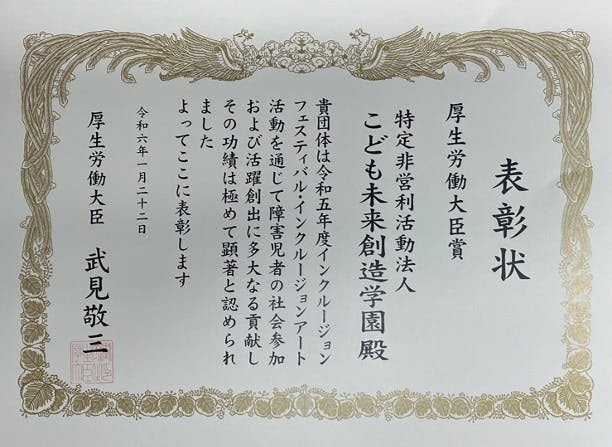 表彰状
厚生労働大臣賞
特定非営利活動法人
こども未来創造学園殿
貴団体は令和五年度インクルージョン
フェスティバル・インクルージョンアート
活動を通じて障害児者の社会参加
および活躍創出に多大なる貢献し
その功績は極めて顕著と認められ
ました
よってここに表彰します
令和六年一月二十二日
厚生労働大臣 武見敬三